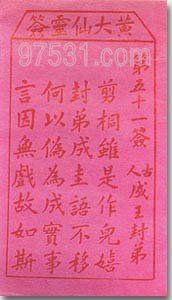 黃大仙靈簽
97531.com
第五十一簽
古人
成王封弟
剪桐雖是作兒嬉
封弟成圭語不移
何以偽為成實事
言因無戲故如斯